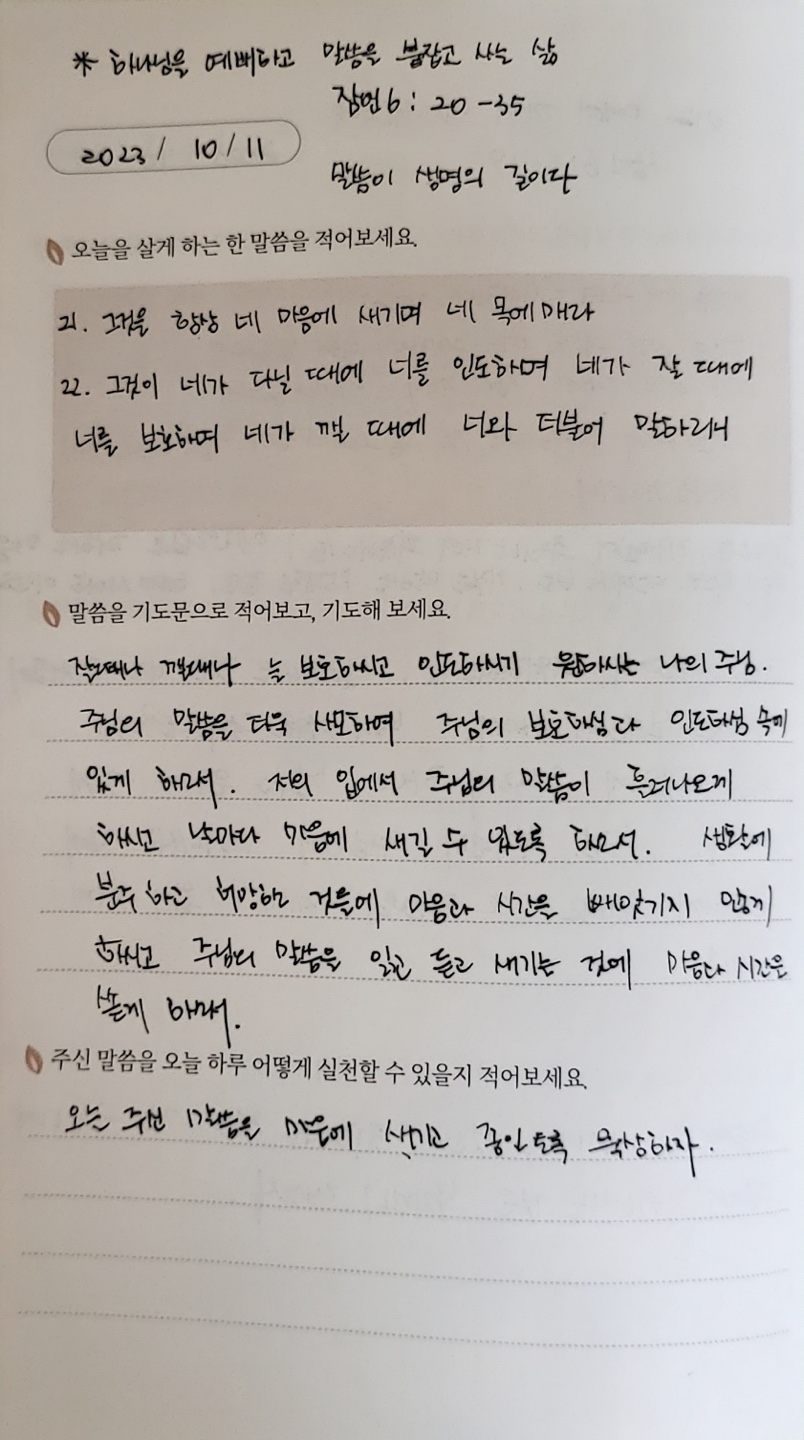 * 하나님을 예배하고 말씀을 붙잡고 사는 삶
잠언 6 : 20 - 35
2023 / 10 / 11
말씀이 생명의 길이다
오늘을 살게 하는 한 말씀을 적어보세요.
21. 그것을 항상 네 마음에 새기며 네 목에 매라
22. 그것이 네가 다닐 때에 너를 인도하며 네가 잘 때에
너를 보호하며 네가 깰 때에 너와 더불어 말하리니
말씀을 기도문으로 적어보고, 기도해 보세요.
잘때나 깰때나 늘 보호하시고 인도하시기 원하시는 나의 주님.
주님의 말씀을 더욱 사모하여 주님의 보호하심과 인도하심 속에
있게 하소서. 저의 입에서 주님의 말씀이 흘러나오게
하시고 날마다 마음에 새길 수 있도록 하소서. 생활에
분주하고 허망한 것들에 마음과 시간을 빼앗기지 않게
하시고 주님의 말씀을 읽고 듣고 새기는 것에 마음과 시간을
쏟게 하소서.
주신 말씀을 오늘 하루 어떻게 실천할 수 있을지 적어보세요.
오늘 주신 말씀을 마음에 새기고 종일토록 묵상하자.